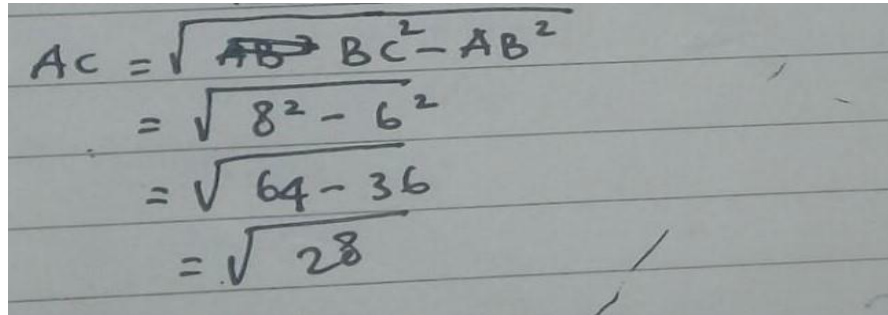 AC = √BC² - AB²
= √8² - 6²
= √64 - 36
= √28